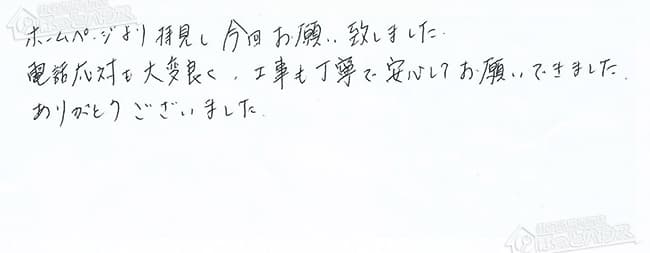 ホームページより拝見し今回お願い致しました.
電話応対も大変良く、工事も丁寧で安心してお願いできました.
ありがとうございました.